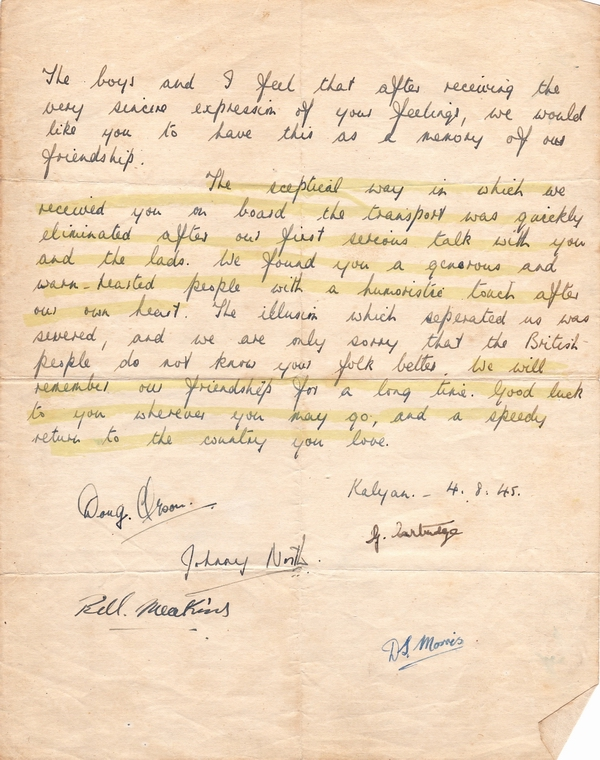 The boys and I feel that after receiving the
very sincere expression of your feelings, we would
like you to have this as a memory of our
friendship.
The sceptical way in which we
received you on board the transport was quickly
eliminated after our first serious talk with you
and the lads. We found you a generous and
warm-hearted people with a humoristic touch after
our own heart. The illusion which seperated us was
severed, and we are only sorry that the British
people do not know your folk better. We will
remember our friendship for a long time. Good luck
to you wherever you may go, and a speedy
return to the country you love.
Kalyan. - 4. 8. 45.
Doug.
Johnny North.
Bill. Meakins
D.S. Morris